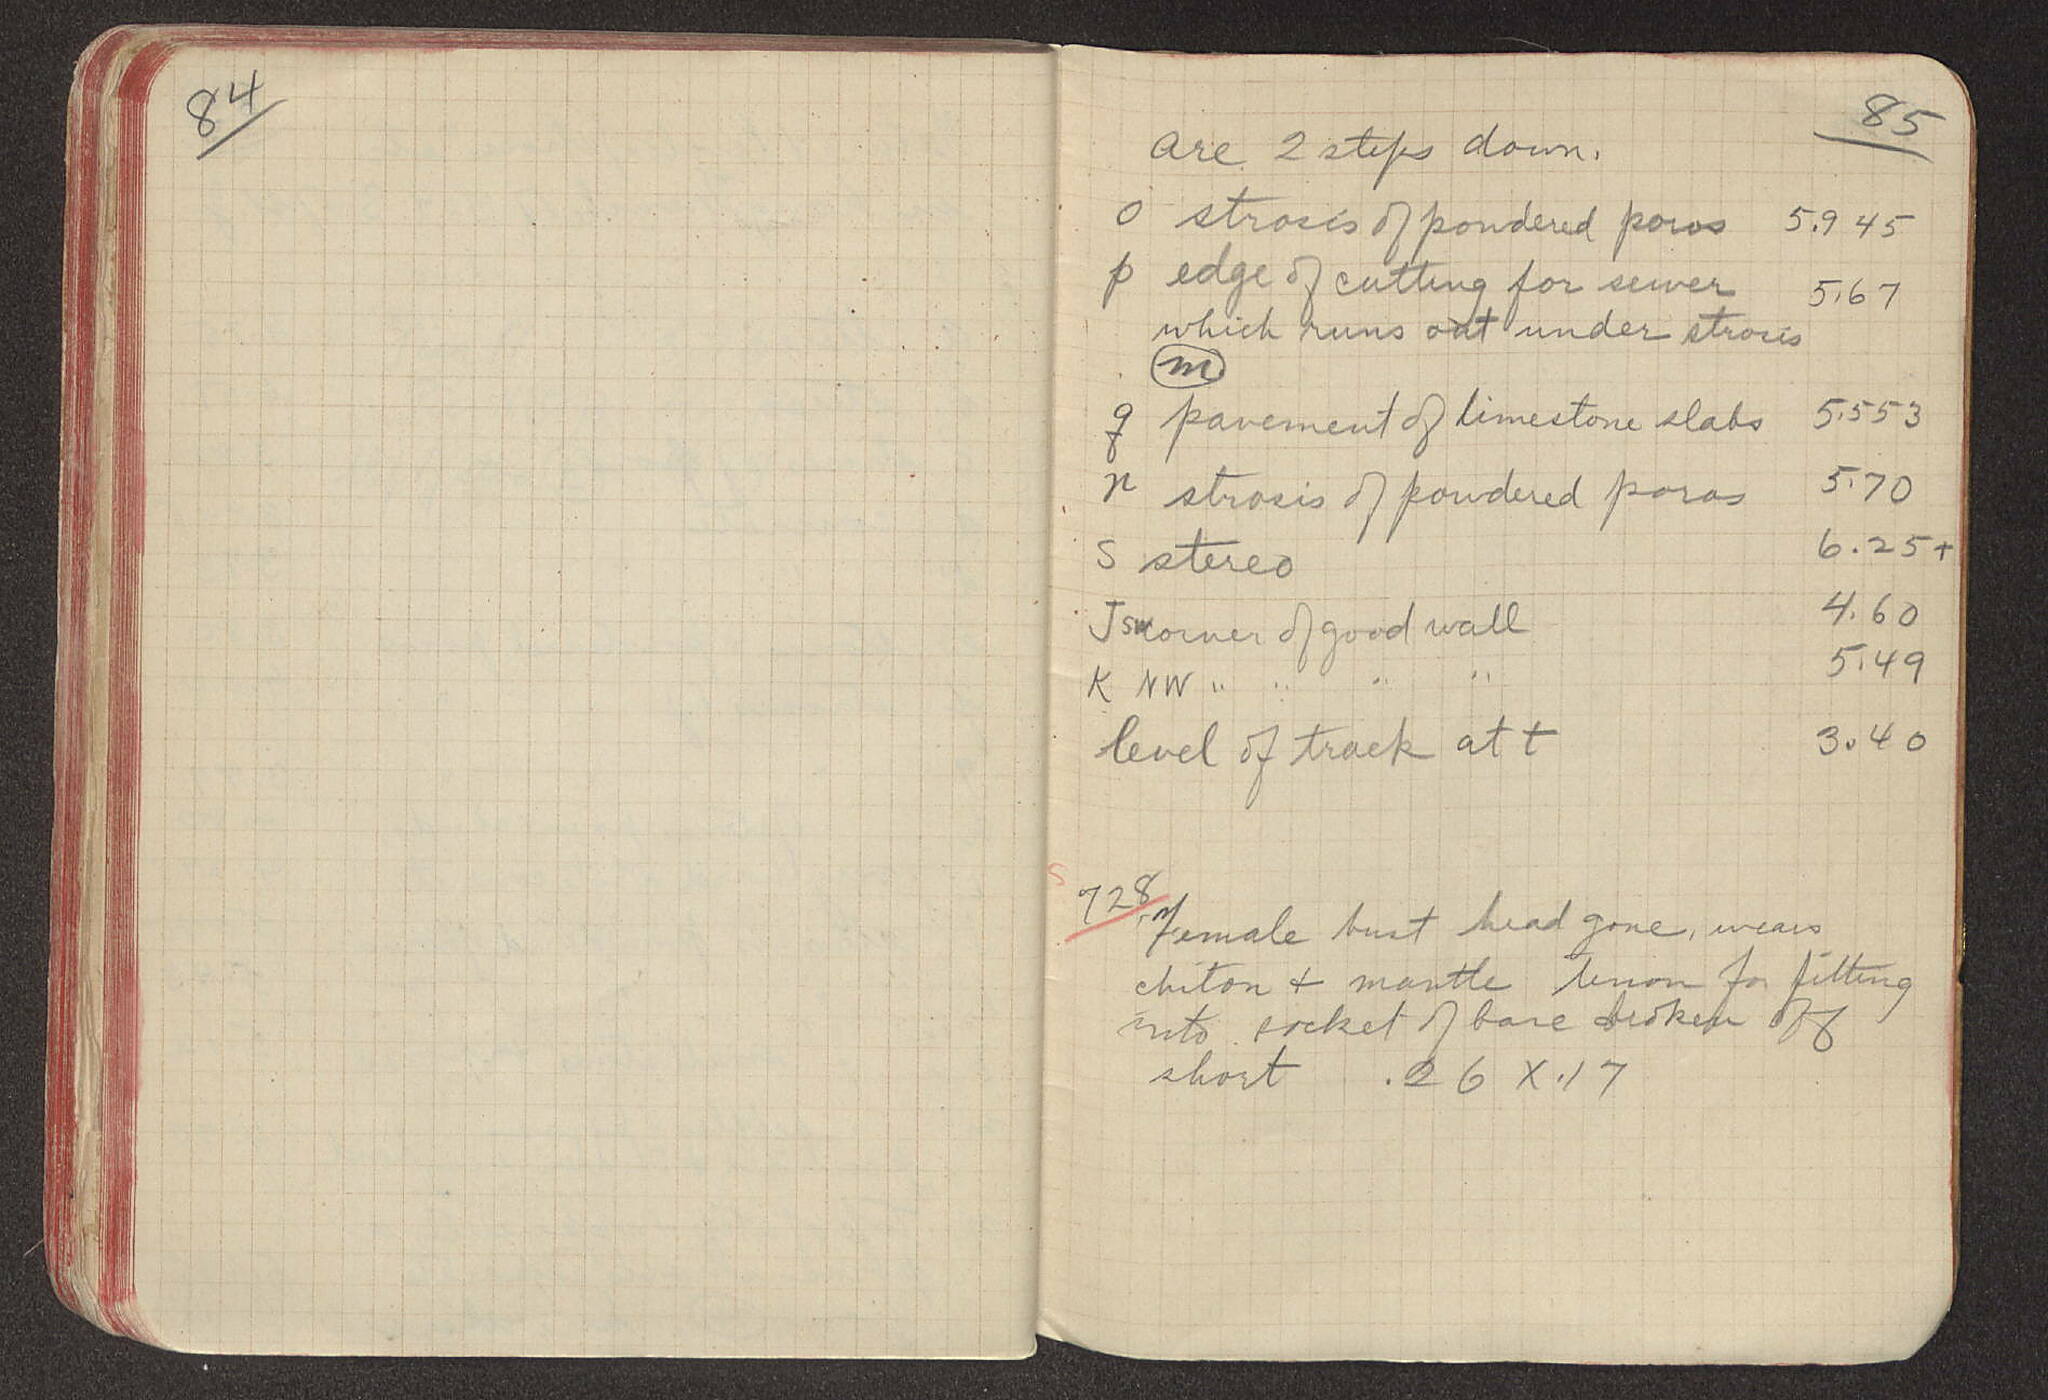 84
85
are 2 steps down.
o strosis of powdered poros 5.945
p edge of cutting for sewer 5.67
which runs out under strosis
m
q pavement of limestone slabs 5.553
r strosis of powdered poros 5.70
S stereo 6.25+
J SW corner of good wall 4.60
K NW " " " " 5.49
level of track at t 3.40
S 728
Female bust head gone, wears
chiton + mantle tenon for fitting
into socket of base broken off
short .26 X .17